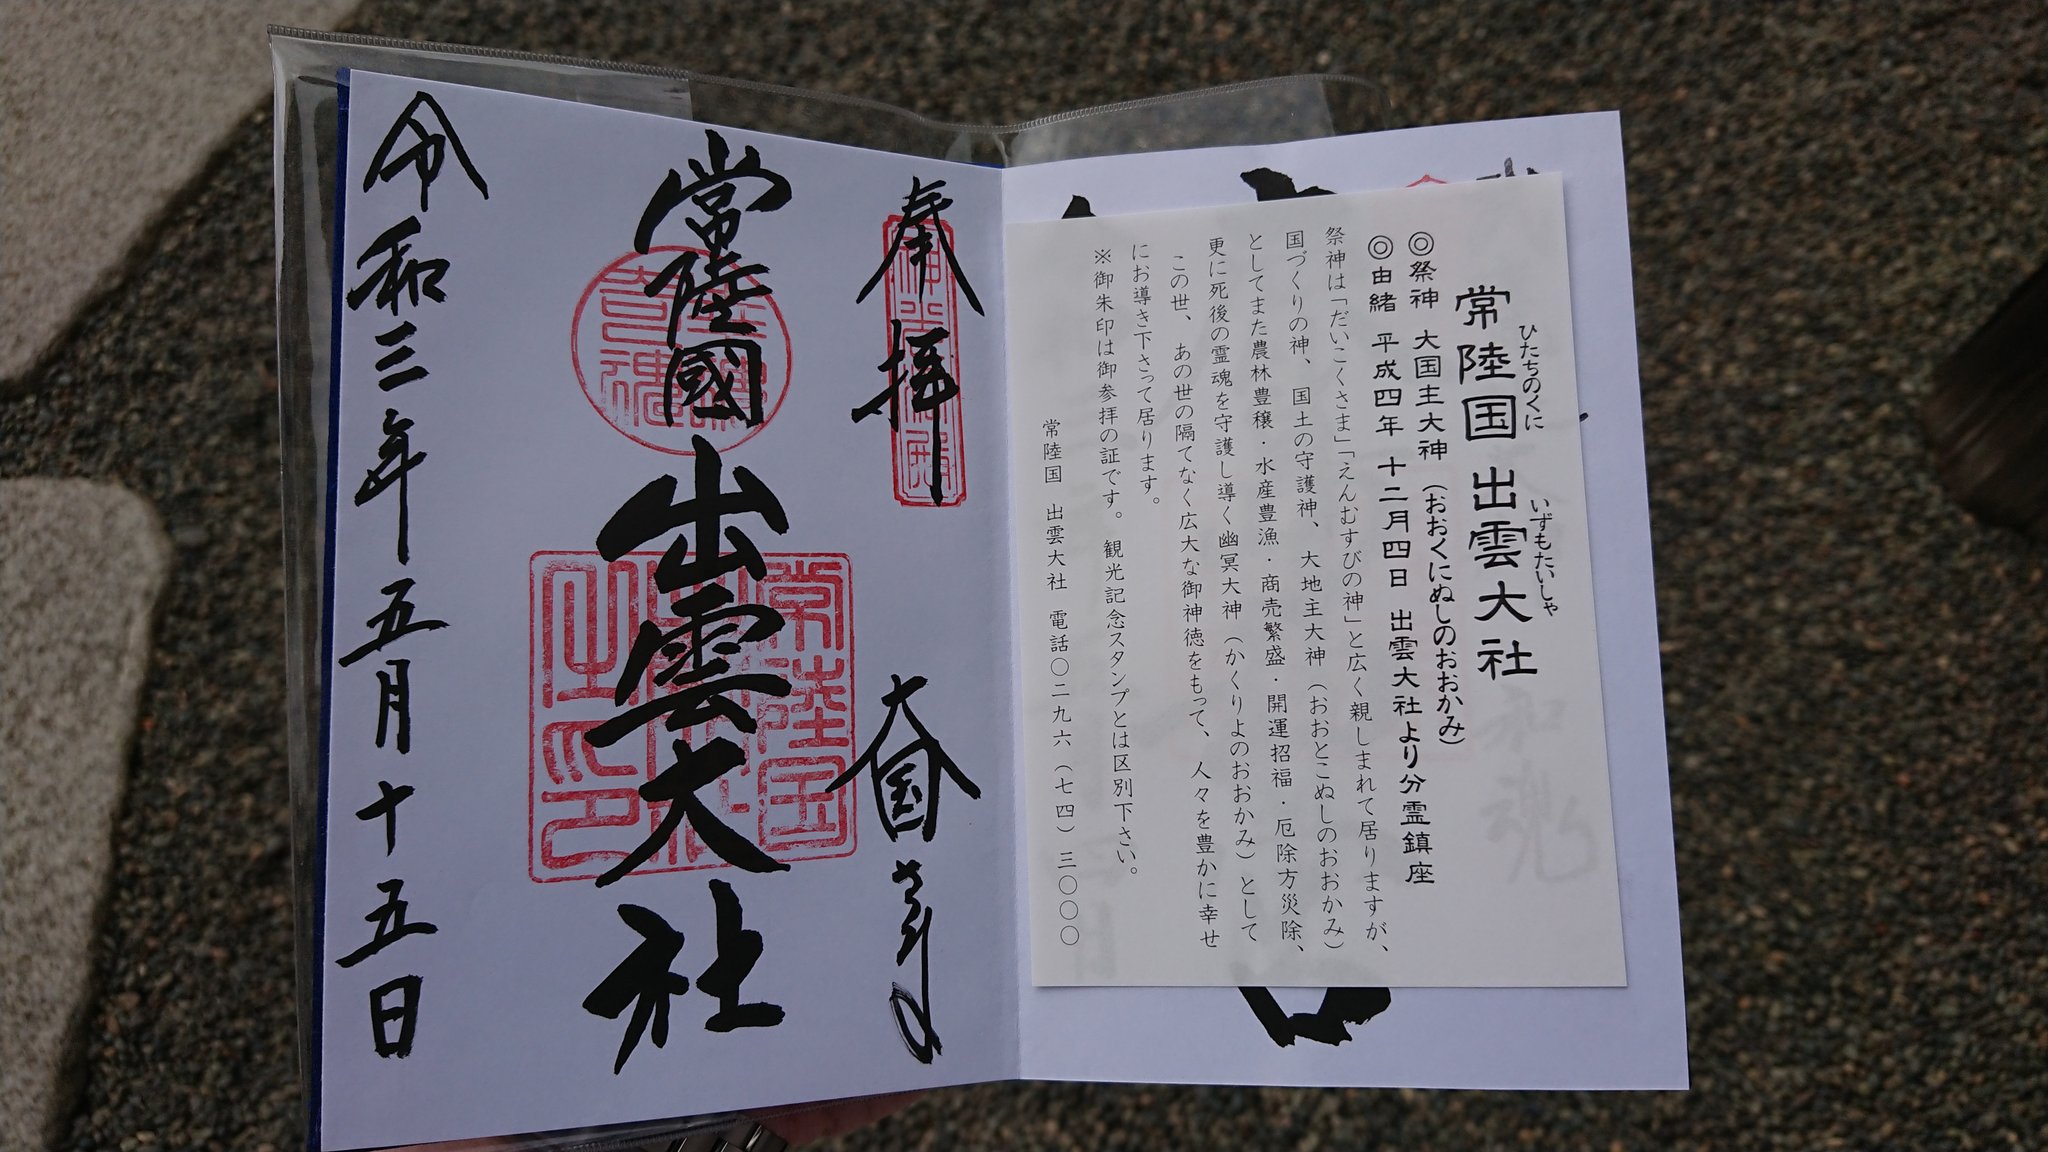 常陸国出雲大社
ひたちのくに
いずもたいしゃ
◎祭神 大国主大神（おおくにぬしのおおかみ）
◎由緒 平成四年 十二月四日 出雲大社より分霊鎮座
祭神は「だいこくさま」「えんむすびの神」と広く親しまれて居りますが、
国づくりの神、国土の守護神、大地主大神（おおとこぬしのおおかみ）
としてまた農林豊穣・水産豊漁・商売繁盛・開運招福・厄除方災除、
更に死後の霊魂を守護し導く幽冥大神（かくりよのおおかみ）として
この世、あの世の隔てなく広大な御神徳をもって、人々を豊かに幸せ
にお導き下さって居ります。
※御朱印は御参拝の証です。観光記念スタンプとは区別下さい。
常陸国 出雲大社 電話〇二九六（七四）三〇〇〇
奉拝
大国
常陸國出雲大社
常陸国
令和三年五月十五日